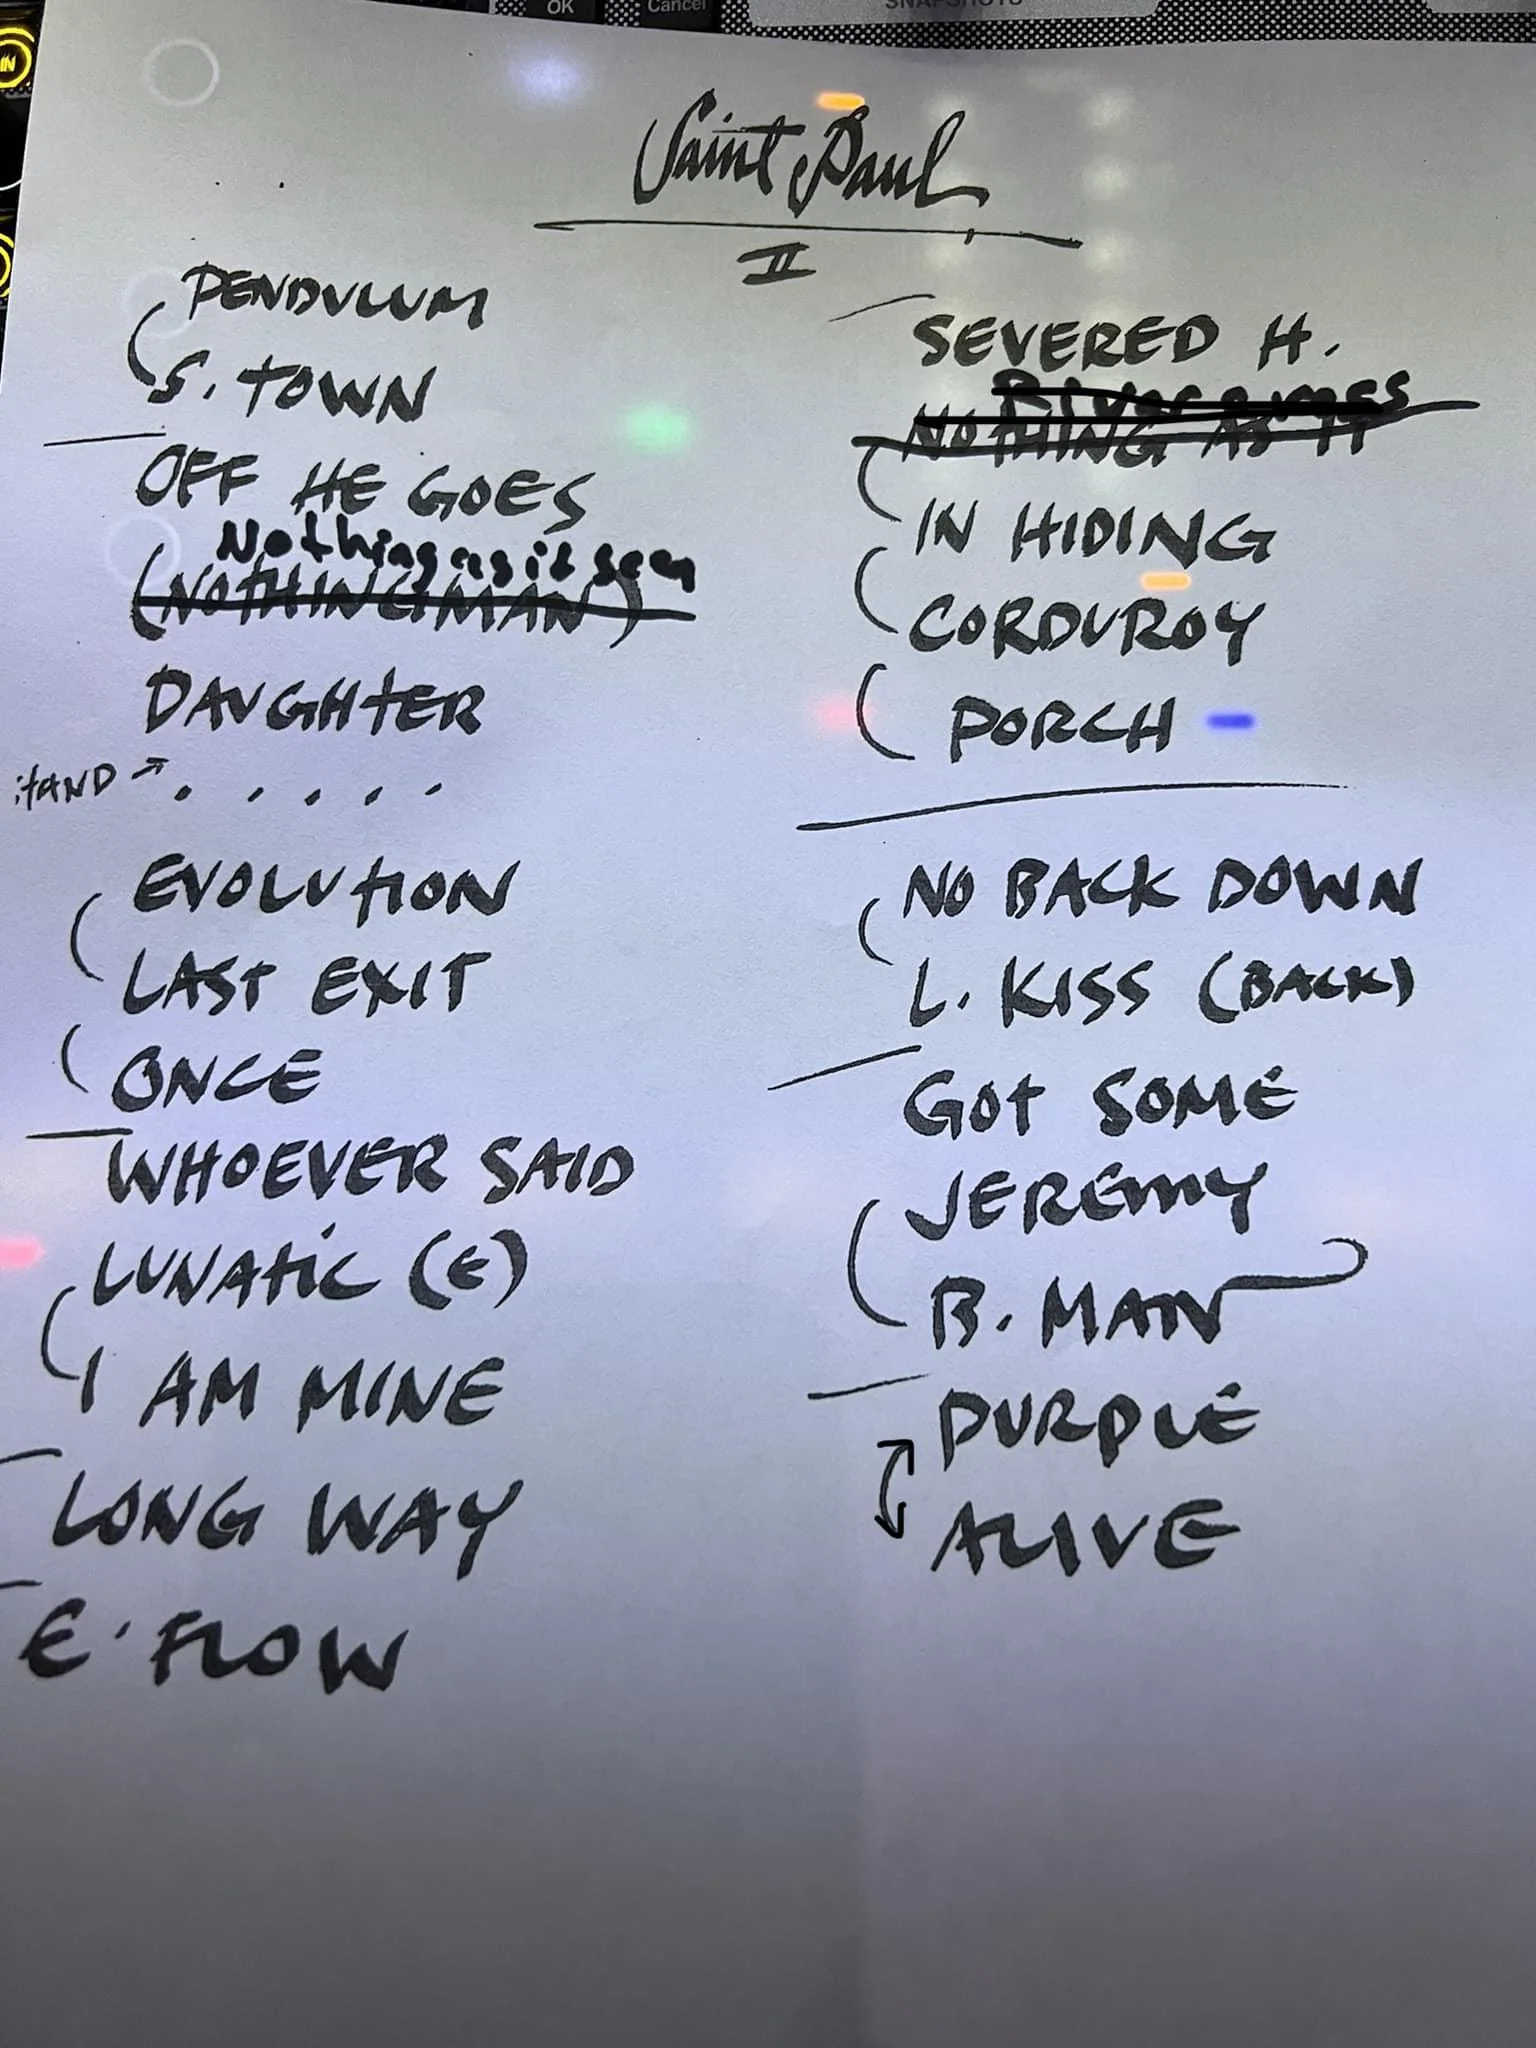 OK
Cancel
SNAPSHOTS
IN
Saint Paul
II
PENDULUM
S. TOWN
OFF HE GOES
Nothing as it seem
(NOTHINGMAN)
DAUGHTER
STAND → . . . . .
EVOLUTION
LAST EXIT
ONCE
WHOEVER SAID
LUNATIC (E)
I AM MINE
LONG WAY
E. FLOW
SEVERED H.
NOTHING AS IT
IN HIDING
CORDUROY
PORCH
NO BACK DOWN
L. KISS (BACK)
GOT SOME
JEREMY
B. MAN
PURPLE
ALIVE